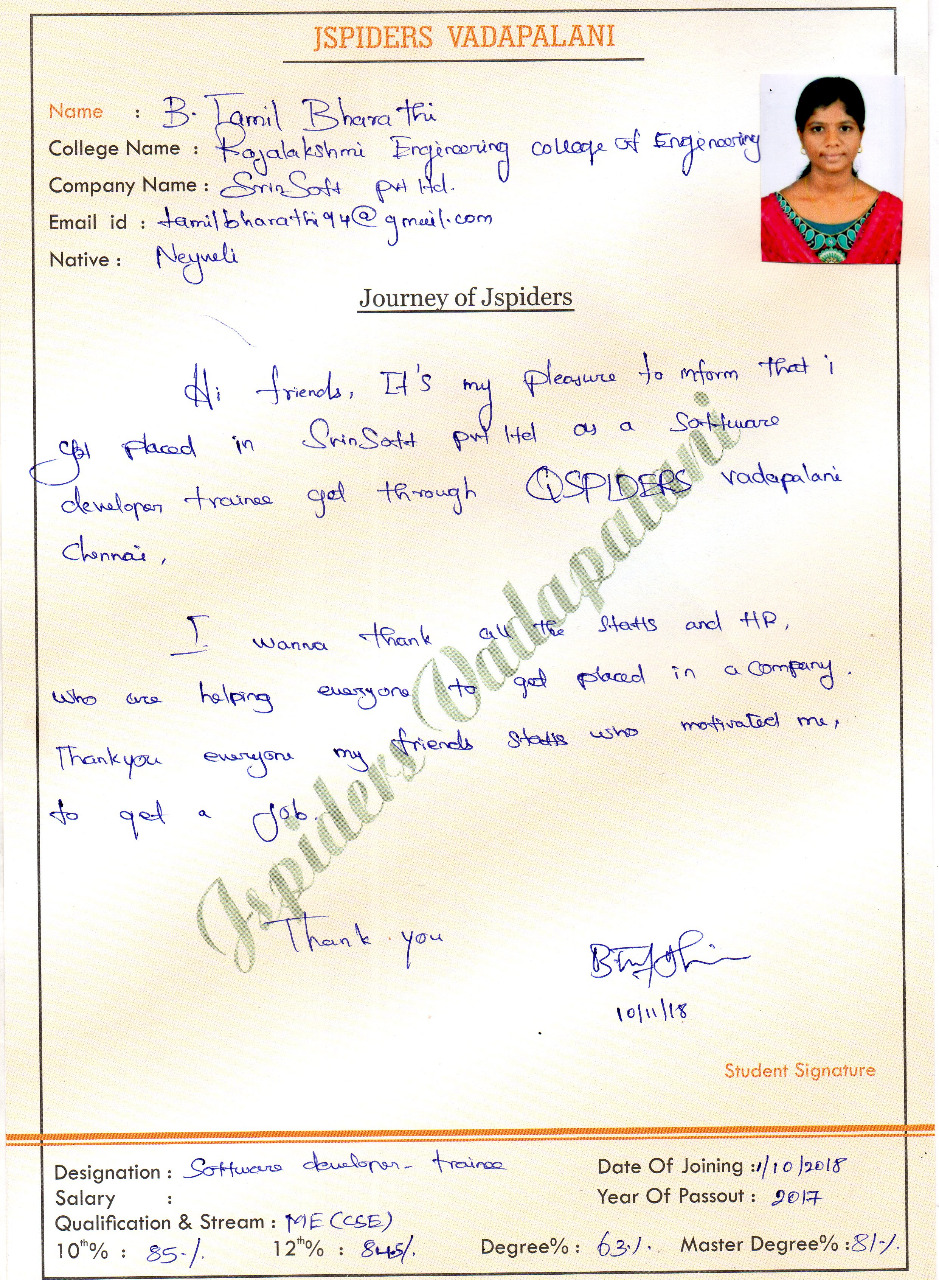 JSPIDERS VADAPALANI
Name : B. Tamil Bharathi
College Name : Rajalakshmi Engineering college of Engineering
Company Name : SrinSoft pvt ltd.
Email id : tamilbharathi94@gmail.com
Native : Neyveli
Journey of Jspiders
Hi friends, It's my pleasure to inform that i
got placed in SrinSoft pvt ltd as a Software
developer trainee got through QSPIDERS vadapalani
Chennai,
I wanna thank all the staffs and HR,
who are helping everyone to get placed in a company.
Thankyou everyone my friends staffs who motivated me,
to get a job.
Jspiders Vadapalani
Thank you
10/11/18
Student Signature
Designation : Software developer - trainee
Date Of Joining : 1/10/2018
Salary :
Year Of Passout : 2017
Qualification & Stream : ME (CSE)
10th% : 85% 12th% : 84% Degree% : 63% Master Degree% : 81%